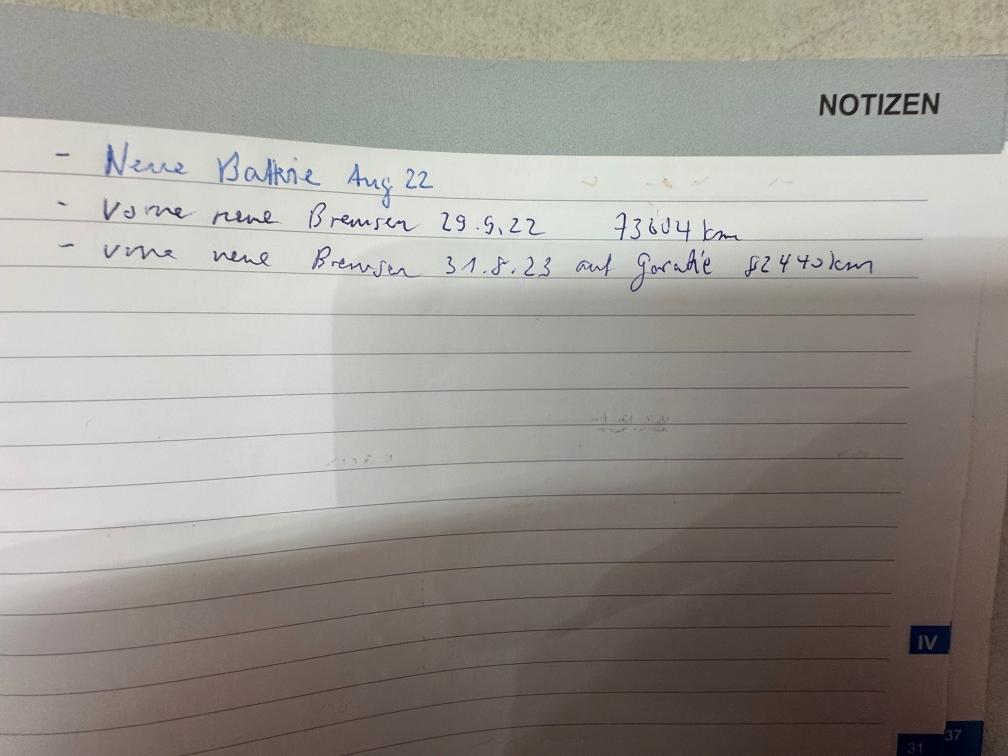 NOTIZEN
- Neue Batterie Aug 22
- Vorne neue Bremsen 29.9.22 73604 km
- vorne neue Bremsen 31.8.23 auf Garatie 82440 km
IV
37
31